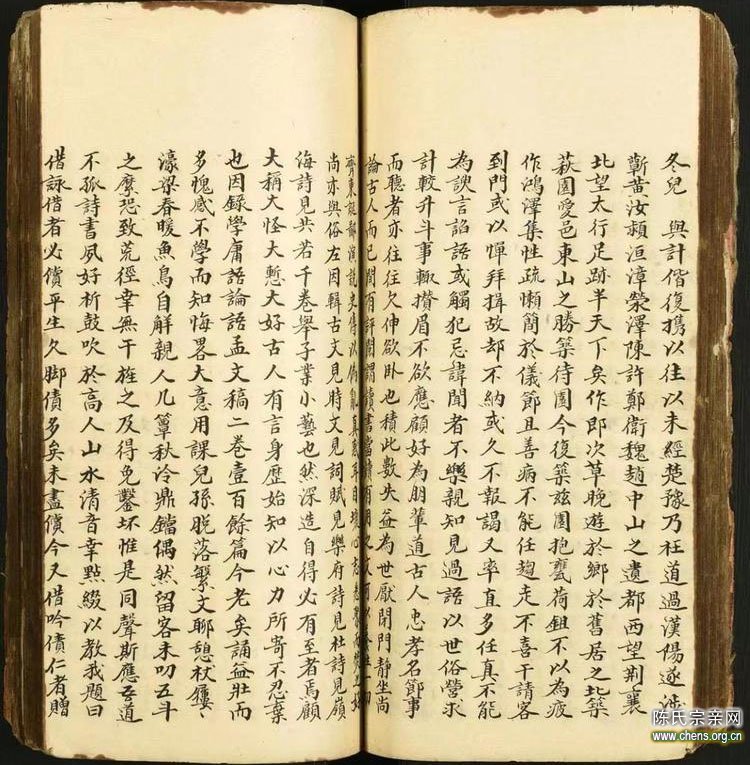 冬兒　與計偕復携以往以未經楚豫乃枉道過漢陽遂涉
蘄黃汝潁洹漳滎澤陳許鄭衛魏趙中山之遺都西望荆襄
北望太行足跡半天下矣作即次草晚遊於鄉於舊居之北築
萩園愛邑東山之勝築待園今復築兹園抱甕荷鉏不以為疲
作鴻澤集性疏懶簡於儀節且善病不能任趨走不喜干請客
到門或以憚拜揖故却不納或久不報謁又率直多任真不能
為諛言諂語或觸犯忌諱聞者不樂親知見過語以世俗營求
計較升斗事輒攢眉不欲應顧好為朋輩道古人忠孝名節事
而聽者亦往往欠伸欲卧也積此數失益為世厭閉門靜坐尚
論古人而已間有
齊東
尚亦與俗左因輯古文見時文見詞賦見樂府詩見杜詩見嶺
海詩見共若干卷舉子業小藝也然深造自得必有至者焉顧
大稱大怪大慙大好古人有言身歷始知以心力所寄不忍棄
也因錄學庸語論語孟文稿二卷壹百餘篇今老矣誦益壯而
多愧感不學而知悔畧大意用課兒孫脱落繁文聊憩杖屨
濠梁春暖魚鳥自觧親人几簟秋冷鼎鐺偶然留客未叨五斗
之縻恐致荒徑幸無干旌之及得免鑿坏惟是同聲斯應吾道
不孤詩書夙好析鼓吹於高人山水清音幸點綴以教我題曰
借詠借者必償平生久脚債多矣未盡償今又借吟債仁者贈
陈氏宗亲网
www.chens.org.cn